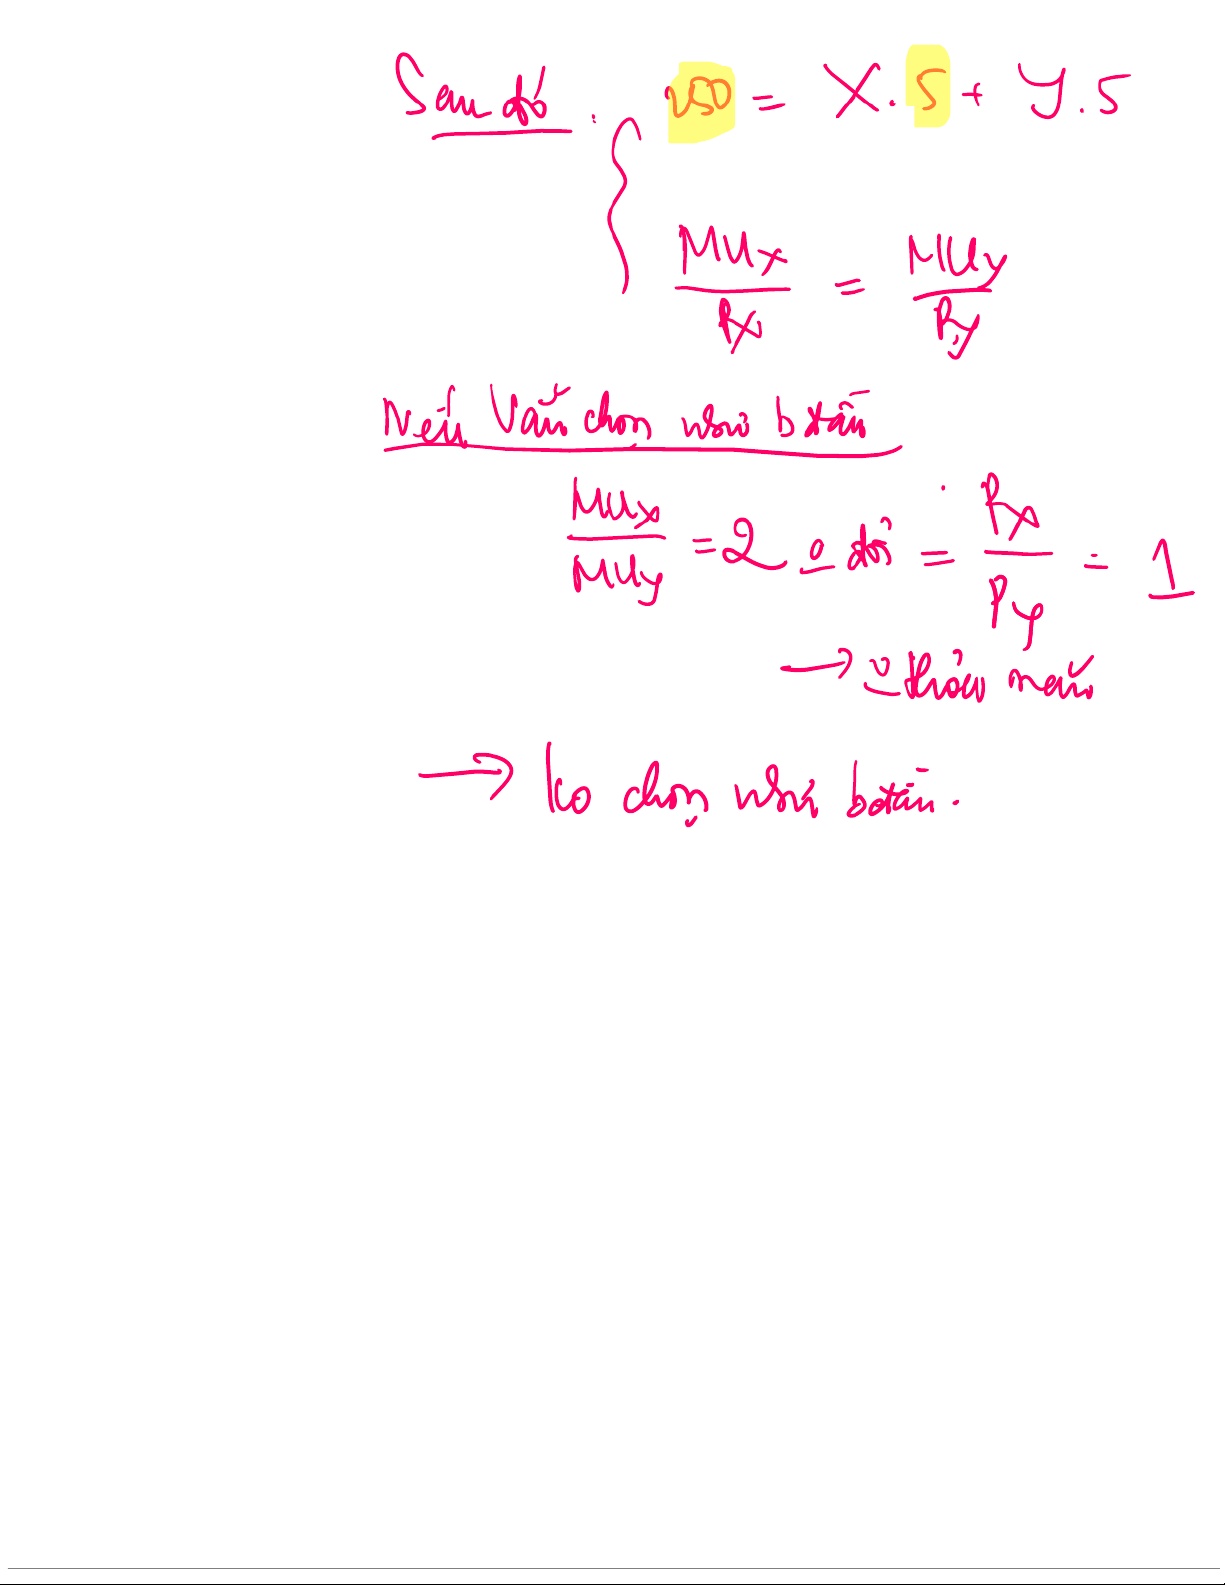 Sau đó: 150 = X.5 + Y.5
MUx / Px = MUy / Py
Nếu vẫn chọn như b đầu
MUx / MUy = 2 o đổi = Px / Py = 1
→ o thỏa mãn
→ ko chọn như b đầu.